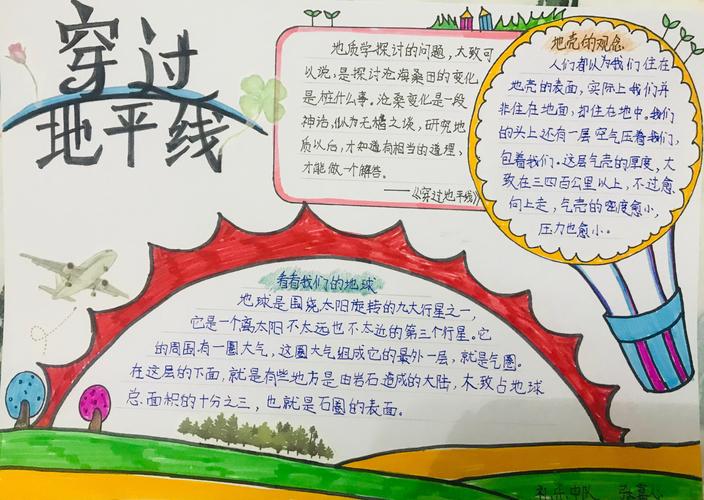 穿过
地平线
地质学探讨的问题，大致可
以说，是探讨沧海桑田的变化
是桩什么事。沧桑变化是一段
神话，似为无稽之谈，研究地
质以后，才知道有相当的道理，
才能做一个解答。
——《穿过地平线》
地壳的观念
人们都以为我们住在
地壳的表面，实际上我们并
非住在地面，却住在地中，我们
的头上还有一层空气压着我们，
包着我们。这层气壳的厚度，大
致在三四百公里以上，不过愈
向上走，气壳的密度愈小，
压力也愈小。
看看我们的地球
地球是围绕太阳旋转的九大行星之一，
它是一个离太阳不太远也不太近的第三个行星。它
的周围有一圈大气，这圈大气组成它的最外一层，就是气圈。
在这层的下面，就是有些地方是由岩石造成的大陆，大致占地球
总面积的十分之三，也就是石圈的表面。
中队